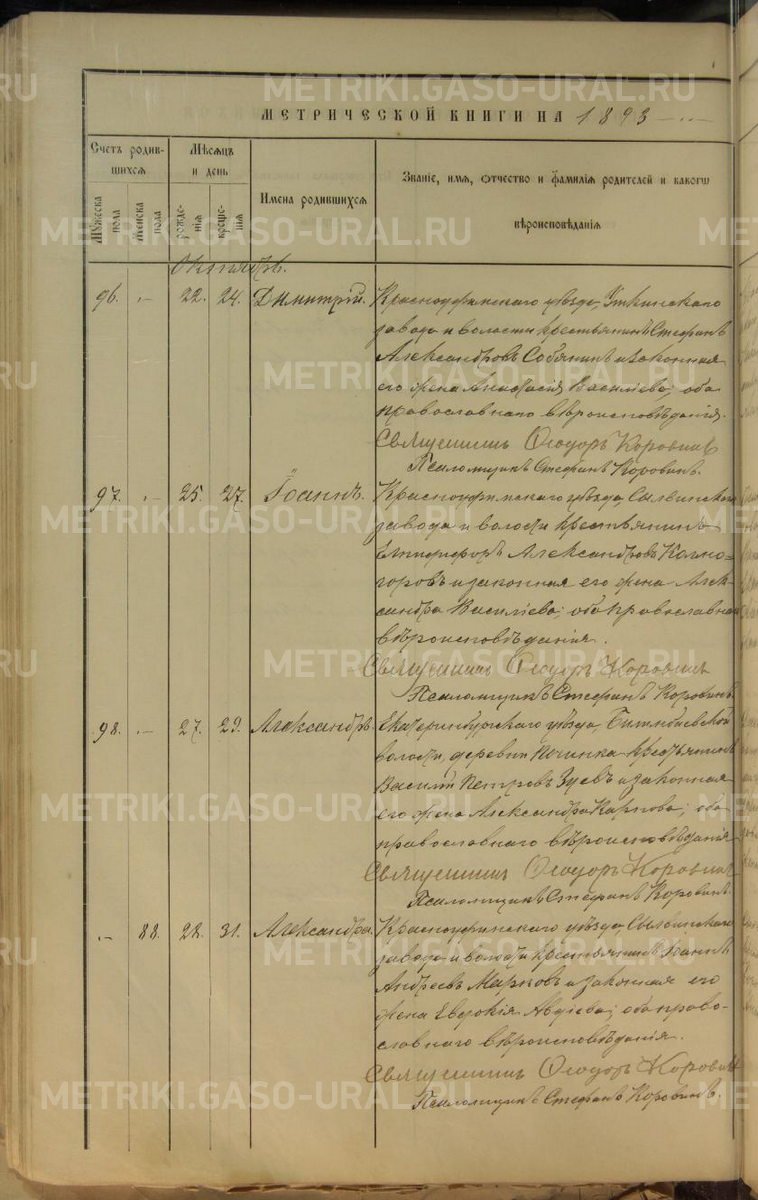 METRIKI.GASO-URAL.RU
МЕТРИЧЕСКОЙ КНИГИ НА 1893
Счетъ родив-
шихся
Мѣсяцъ
и день
Мужеска
пола
Женска
пола
рожде-
нія
креще-
нія
Имена родившихся
Званіе, имя, отчество и фамилія родителей и какого
вѣроисповѣданія
Октябрь.
96. 22. 24. Димитрій.
Красноуфимскаго уѣзда, Уткинскаго
завода и волости крестьянинъ Стефанъ
Александровъ Собянинъ и законная
его жена Анастасія Василіева; оба
православнаго вѣроисповѣданія.
Священникъ Ѳеодоръ Коровинъ
Псаломщикъ Стефанъ Коровинъ.
97. 25. 27. Іоаннъ.
Красноуфимскаго уѣзда, Сылвинскаго
завода и волости крестьянинъ
Александровъ Колмо-
горовъ и законная его жена Алек-
сандра Василіева; оба православнаго
вѣроисповѣданія.
Священникъ Ѳеодоръ Коровинъ
Псаломщикъ Стефанъ Коровинъ
98. 27. 29. Александръ.
Екатеринбургскаго уѣзда, Битимбаевской
волости, деревни Починка крестьянинъ
Василій Петровъ Зуевъ и законная
его жена Александра Карпова; оба
православнаго вѣроисповѣданія
Священникъ Ѳеодоръ Коровинъ
Псаломщикъ Стефанъ Коровинъ.
88. 22. 31. Александра.
Красноуфимскаго уѣзда, Сылвинскаго
завода и волости крестьянинъ Іоаннъ
Андреевъ Марковъ и законная его
жена Евдокія Авдіева; оба право-
славнаго вѣроисповѣданія.
Священникъ Ѳеодоръ Коровинъ
Псаломщикъ Стефанъ Коровинъ.